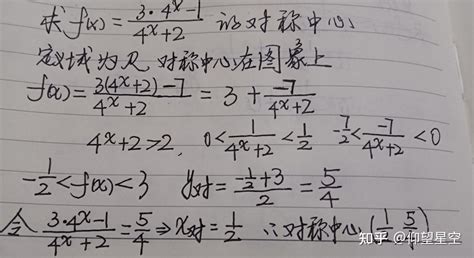 求 f(x) = (3·4^x-1)/(4^x+2) 的对称中心
定义域为R, 对称中心在图象上
f(x) = (3(4^x+2)-7)/(4^x+2) = 3 + (-7)/(4^x+2)
4^x+2>2, 0<1/(4^x+2)<1/2 -7/2<(-7)/(4^x+2)<0
-1/2<f(x)<3 y对=(-1/2+3)/2=5/4
令 (3·4^x-1)/(4^x+2)=5/4 ⇒ x对=1/2 ∴对称中心(1/2, 5/4)
知乎 @仰望星空